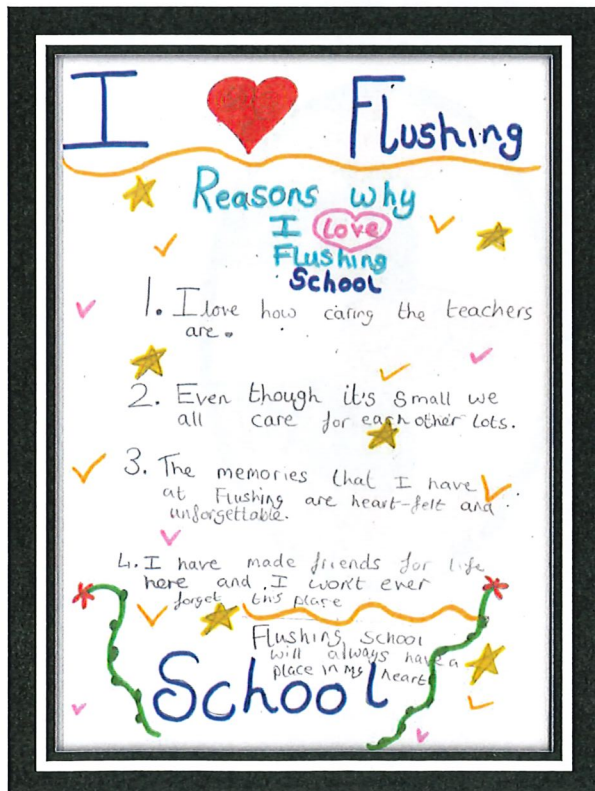 I ❤ Flushing
Reasons why
I love
Flushing
School
1. I love how caring the teachers
are.
2. Even though it's small we
all care for each other lots.
3. The memories that I have
at Flushing are heart-felt and
unforgettable.
4. I have made friends for life
here and I won't ever
forget this place
Flushing school
will always have a
place in my heart
School